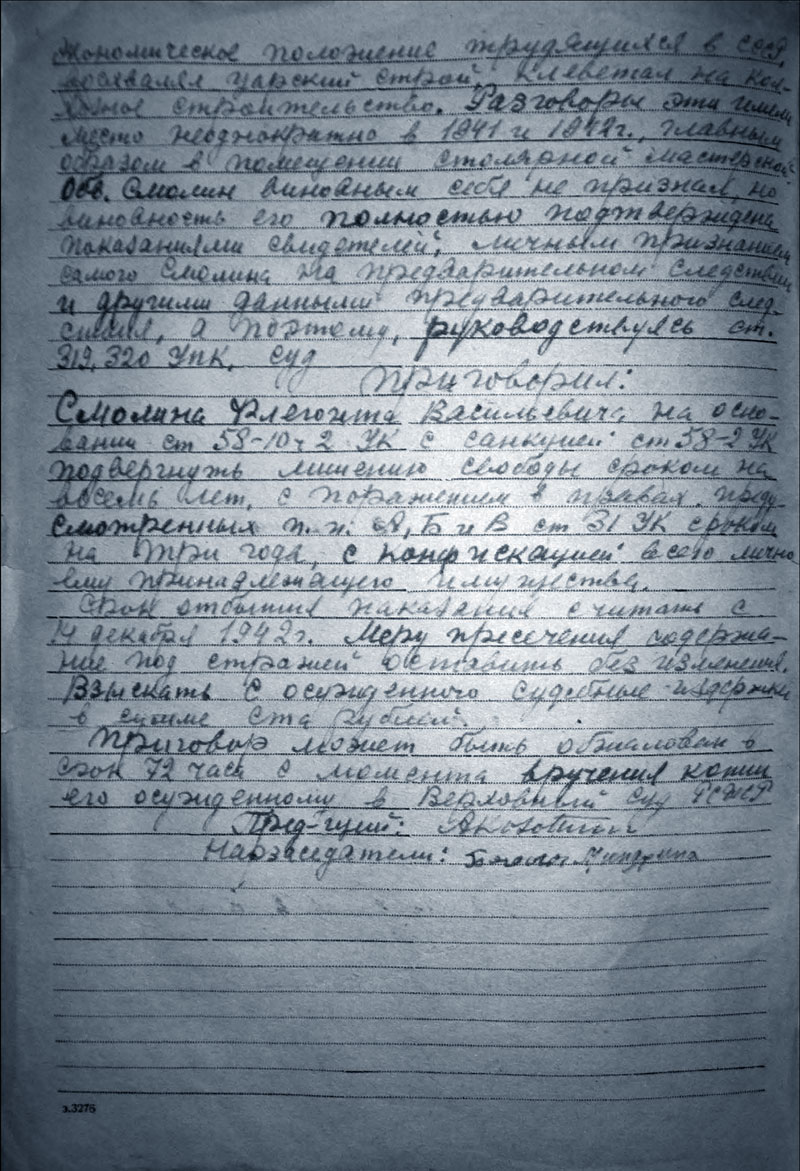 экономическое положение трудящихся в СССР,
восхвалял царский строй, клеветал на кол-
хозное строительство. Разговоры эти имели
место неоднократно в 1941 и 1942г., главным
образом в помещении столярной мастерской
Обв. Смолин виновным себя не признал, но
виновность его полностью подтверждена
показаниями свидетелей, личным признанием
самого Смолина на предварительном следствии
и другими данными предварительного след-
ствия, а поэтому, руководствуясь ст.
319, 320 УПК, суд
Приговорил:
Смолина Флегонта Васильевича на осно-
вании ст 58-10 ч 2 УК с санкцией ст 58-2 УК
подвергнуть лишению свободы сроком на
восемь лет, с поражением в правах, преду-
смотренных п.п. А, Б и В ст 31 УК сроком
на три года, с конфискацией всего лично
ему принадлежащего имущества.
Срок отбытия наказания считать с
14 декабря 1942г. Меру пресечения содержа-
ние под стражей оставить без изменения.
Взыскать с осужденного судебные издержки
в сумме ста рублей.
Приговор может быть обжалован в
срок 72 часа с момента вручения копии
его осужденному в Верховный Суд РСФСР
Пред-щий:
Нарзаседатели:
з.3276